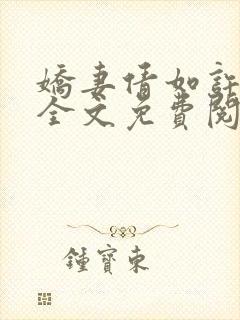 嬌妻情如許
全文免費閱
鍾寶東